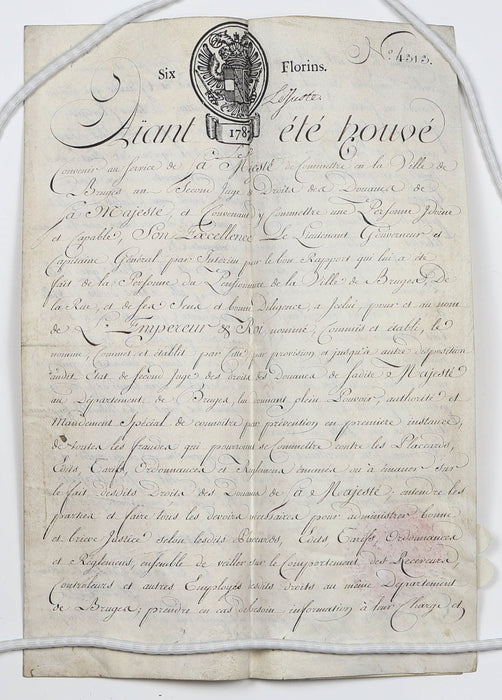 Six Florins. Nº 4313.
178
Lejuste
Aiant été trouvé
Convenir au service de Sa Majesté de Commettre en la Ville de
Bruges un Second Juge des Droits des Douanes de
Sa Majesté, et Convenant y Commettre une Personne Idoine
et Capable, Son Excellence Le Lieutenant Gouverneur et
Capitaine Général par Interim par le bon Rapport qui lui a été
fait de la Personne du Pensionnaire de la Ville de Bruges, De
la Rue, et de ses Sens et bonne Diligence, a icelui pour et au nom
de L'Empereur & Roi nommé, Commis et établi, le
nomme, Commet et établit par Cette par provision et jusqu'à autre disposition
audit Etat de Second Juge des droits des Douanes de Sadite Majesté
au Département de Bruges, lui donnant plein Pouvoir, authorité et
Mandement Spécial de connoitre par prévention en première instance,
de toutes les fraudes qui pourront se Commettre contre les Placcards,
Edits, Tarifs, Ordonnances et Reglemens émanés ou à émaner sur
le fait desdits Droits des Douanes de Sa Majesté; entendre les
parties et faire tous les devoirs nécessaires pour administrer bonne
et brieve Justice selon lesdits Placcards, Edits, Tarifs, Ordonnances
et Réglemens, ensemble de veiller sur le Comportement des Receveurs
Controleurs et autres Employés desdits droits au même Département
de Bruges; prendre en cas de besoin information à leur Charge et